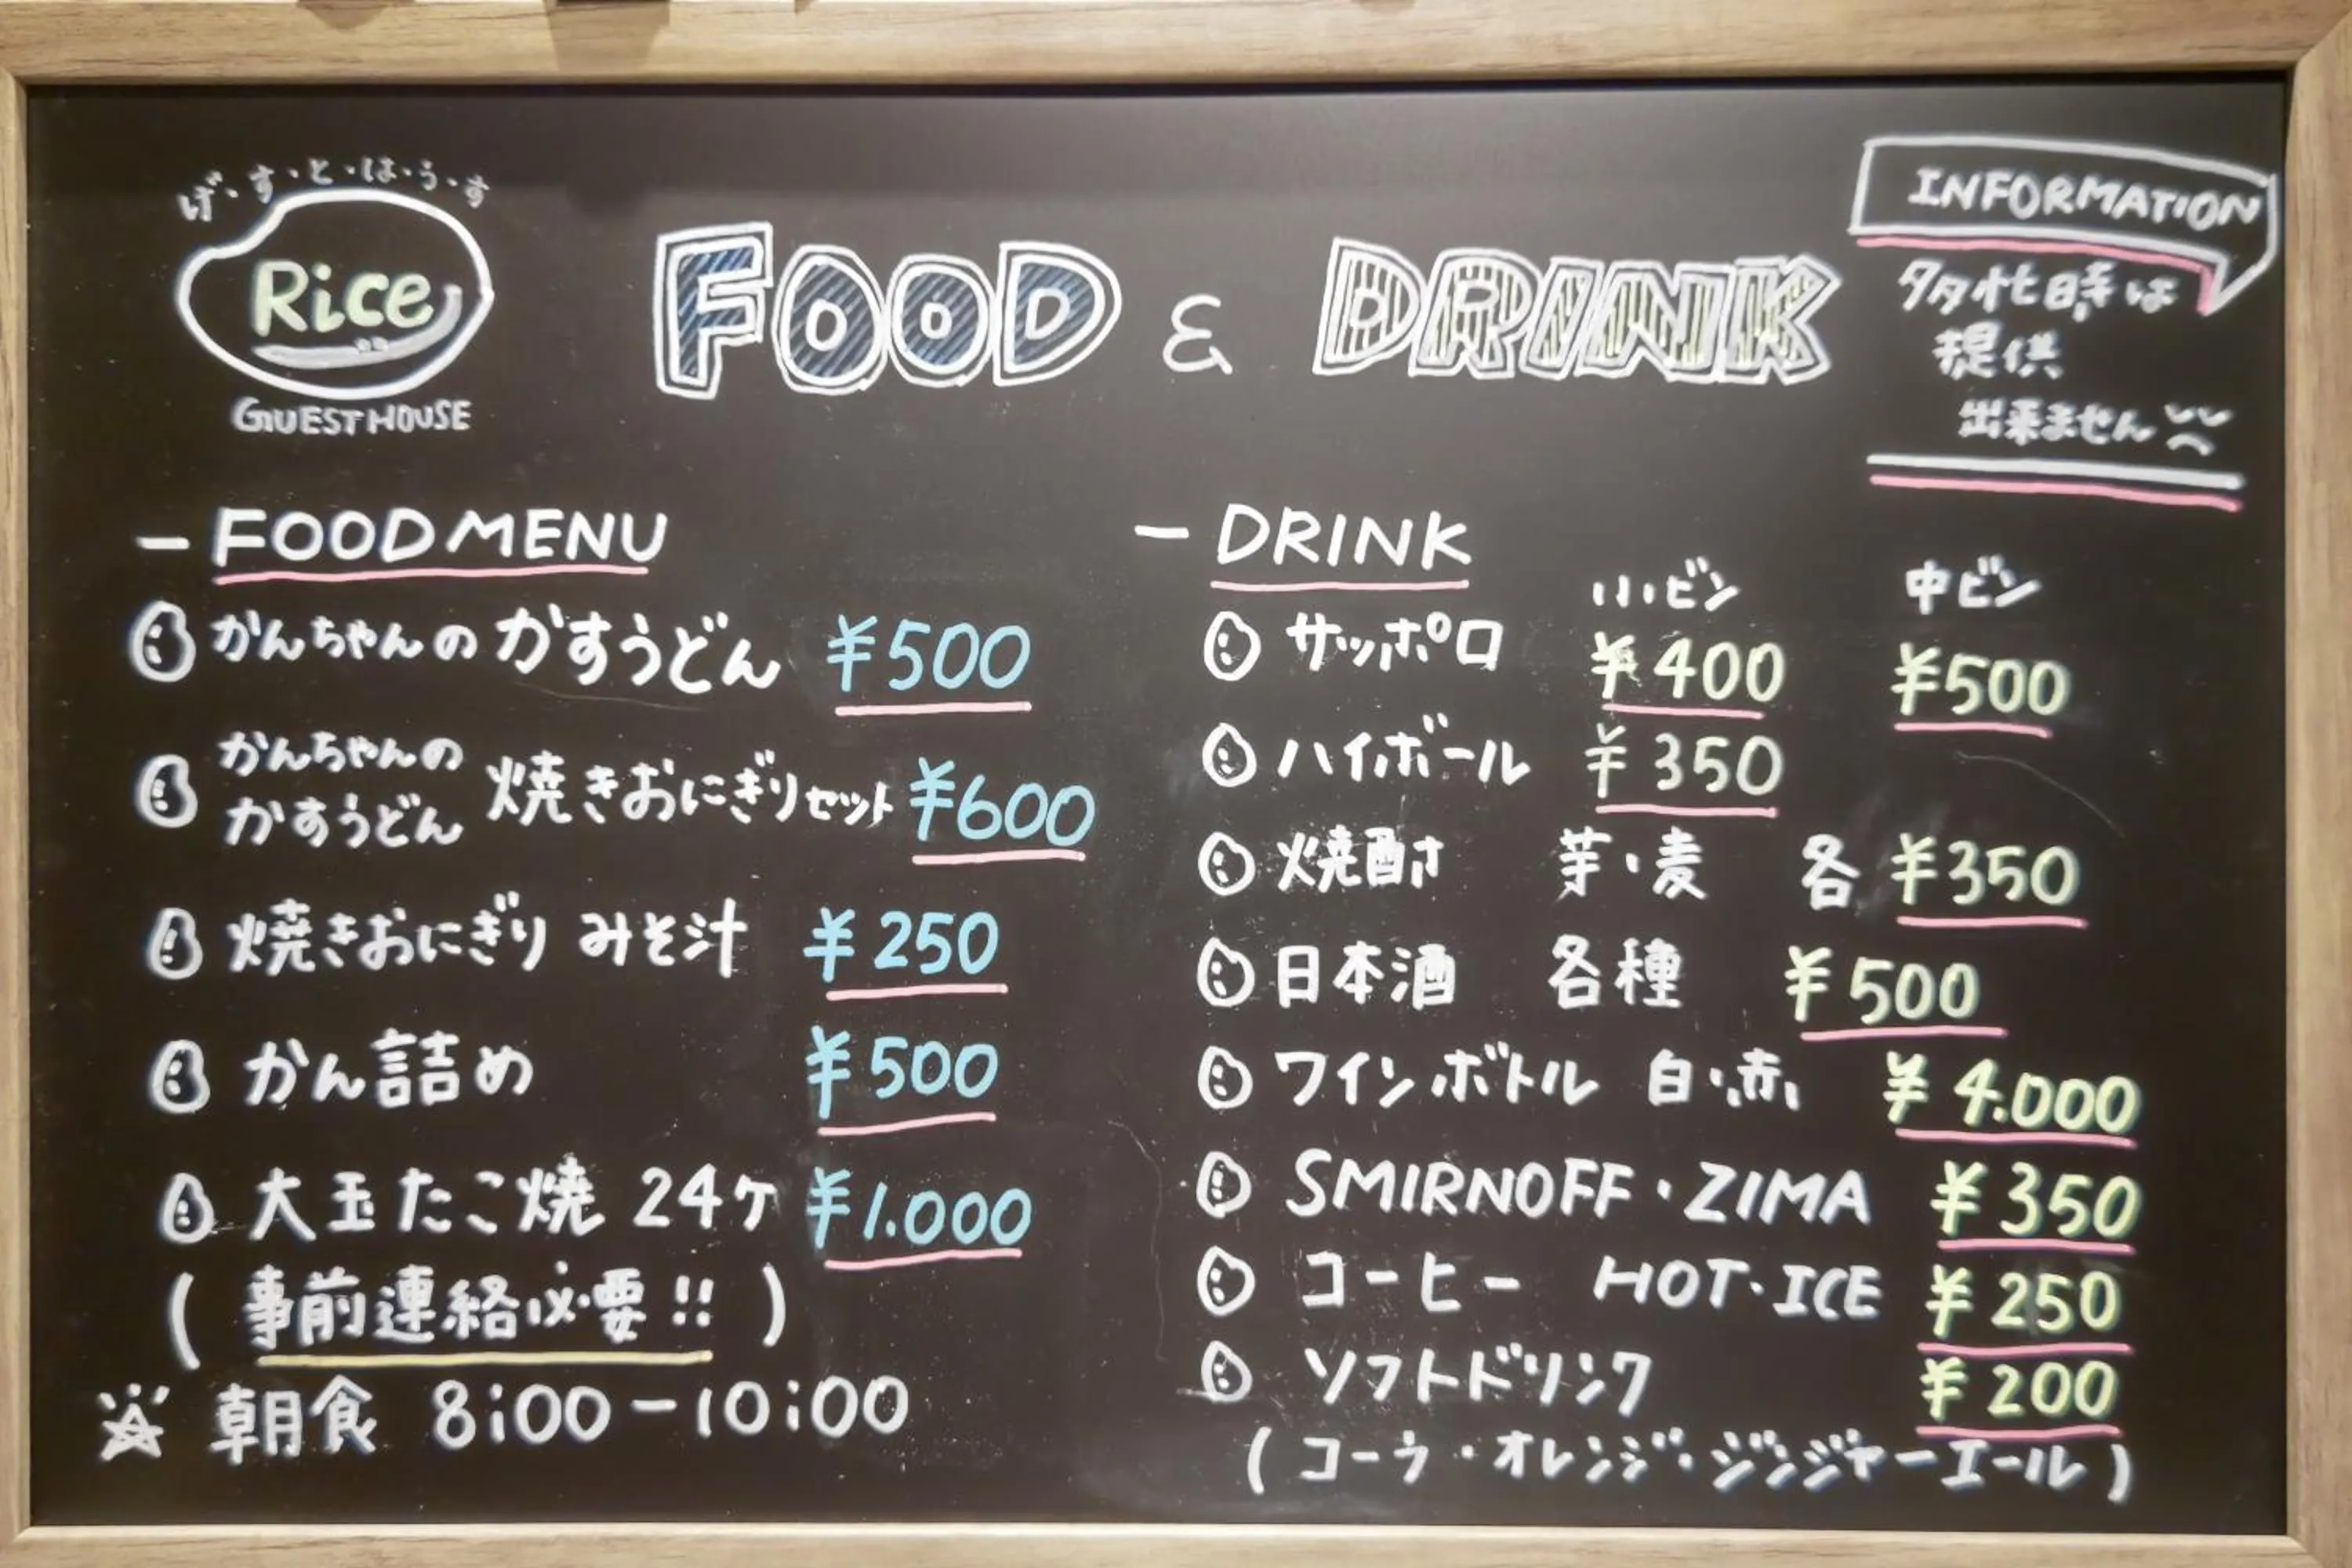 げ・す・と・は・う・す
Rice
GUEST HOUSE
FOOD & DRINK
INFORMATION
多忙時は
提供
出来ません
- FOOD MENU
かんちゃんの かすうどん ¥500
かんちゃんの
かすうどん 焼きおにぎりセット ¥600
焼きおにぎり みそ汁 ¥250
かん詰め ¥500
大玉たこ焼 24ケ ¥1.000
( 事前連絡必要!! )
朝食 8:00-10:00
- DRINK
小ビン 中ビン
サッポロ ¥400 ¥500
ハイボール ¥350
焼酎 芋・麦 各¥350
日本酒 各種 ¥500
ワインボトル 白・赤 ¥4.000
SMIRNOFF・ZIMA ¥350
コーヒー HOT・ICE ¥250
ソフトドリンク ¥200
( コーラ・オレンジ・ジンジャーエール )